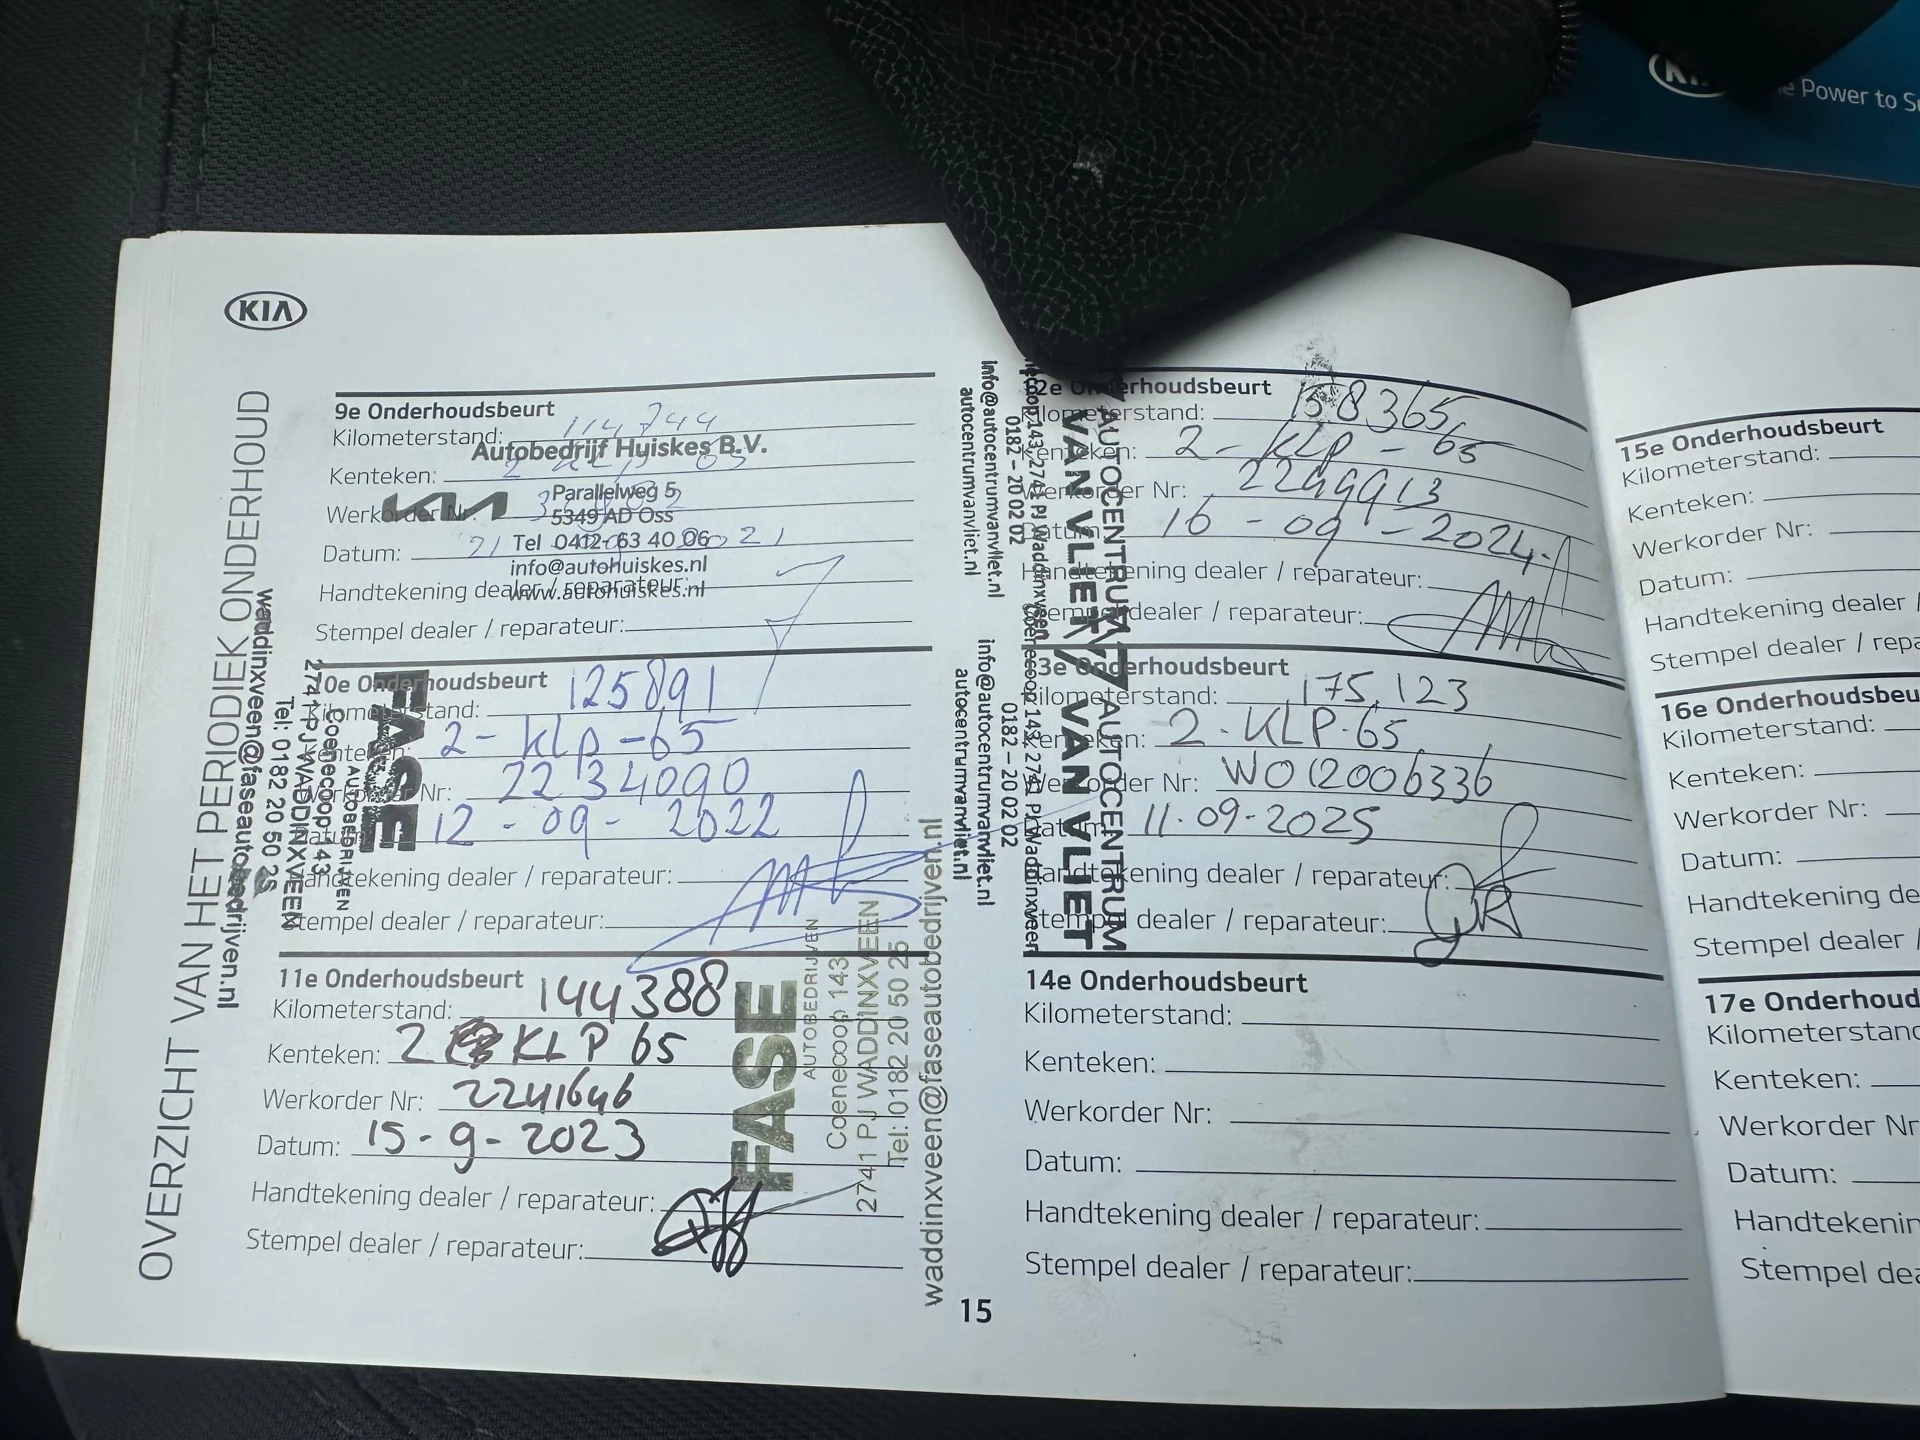 KIA
Power to
KIA
OVERZICHT VAN HET PERIODIEK ONDERHOUD
9e Onderhoudsbeurt
Kilometerstand: 114744
Autobedrijf Huiskes B.V.
Kenteken:
Parallelweg 5
Werkorder Nr.:
5349 AD Oss
Tel 0412- 63 40 06
Datum: 21 2021
info@autohuiskes.nl
Handtekening dealer / reparateur:
www.autohuiskes.nl
Stempel dealer / reparateur:
10e Onderhoudsbeurt
Kilometerstand: 125891
Kenteken: 2-KLP-65
Werkorder Nr: 2234090
Datum: 12-09-2022
Handtekening dealer / reparateur:
Stempel dealer / reparateur:
FASE
AUTOBEDRIJVEN
Coenecoop 143
2741 PJ WADDINXVEEN
Tel: 0182 20 50 25
waddinxveen@faseautobedrijven.nl
11e Onderhoudsbeurt
Kilometerstand: 144388
Kenteken: 2 KLP 65
Werkorder Nr: 2241646
Datum: 15-9-2023
Handtekening dealer / reparateur:
Stempel dealer / reparateur:
FASE
AUTOBEDRIJVEN
Coenecoop 143
2741 PJ WADDINXVEEN
Tel: 0182 20 50 25
waddinxveen@faseautobedrijven.nl
12e Onderhoudsbeurt
Kilometerstand: 158365
Kenteken: 2-KLP-65
Werkorder Nr: 2249913
Datum: 16-09-2024
Handtekening dealer / reparateur:
Stempel dealer / reparateur:
AUTOCENTRUM
VAN VLIET
Coenecoop 143, 2741 PJ Waddinxveen
0182 - 20 02 02
info@autocentrumvanvliet.nl
autocentrumvanvliet.nl
13e Onderhoudsbeurt
Kilometerstand: 175.123
Kenteken: 2-KLP-65
Werkorder Nr: WO12006336
Datum: 11-09-2025
Handtekening dealer / reparateur:
Stempel dealer / reparateur:
AUTOCENTRUM
VAN VLIET
Coenecoop 143, 2741 PJ Waddinxveen
0182 - 20 02 02
info@autocentrumvanvliet.nl
autocentrumvanvliet.nl
14e Onderhoudsbeurt
Kilometerstand:
Kenteken:
Werkorder Nr:
Datum:
Handtekening dealer / reparateur:
Stempel dealer / reparateur:
15
15e Onderhoudsbeurt
Kilometerstand:
Kenteken:
Werkorder Nr:
Datum:
Handtekening dealer /
Stempel dealer / repa
16e Onderhoudsbeu
Kilometerstand:
Kenteken:
Werkorder Nr:
Datum:
Handtekening de
Stempel dealer /
17e Onderhoud
Kilometerstand
Kenteken:
Werkorder Nr
Datum:
Handtekenin
Stempel dea